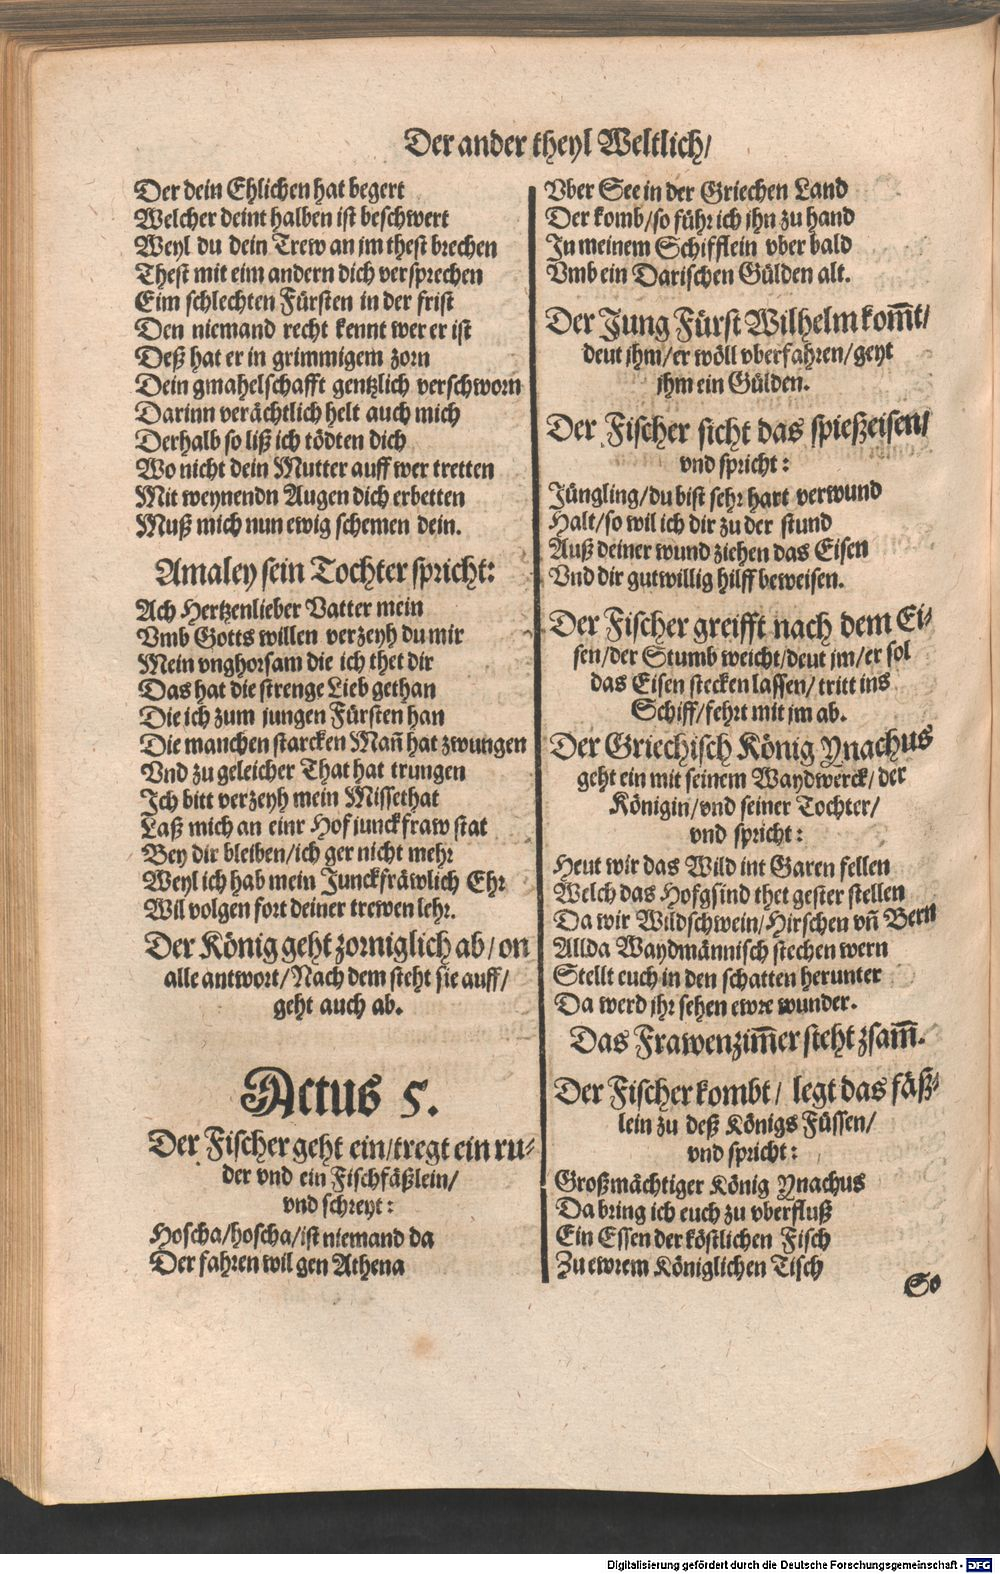 Der ander theyl Weltlich/
Der dein Ehlichen hat begert
Welcher deint halben ist beschwert
Weyl du dein Trew an jm thest brechen
Thest mit eim andern dich versprechen
Eim schlechten Fürsten in der frist
Den niemand recht kennt wer er ist
Deß hat er in grimmigem zorn
Dein gmahelschafft gentzlich verschworn
Darinn verächtlich helt auch mich
Derhalb so liß ich tödten dich
Wo nicht dein Mutter auff wer tretten
Mit weynendn Augen dich erbetten
Muß mich nun ewig schemen dein.
Amaley sein Tochter spricht:
Ach Hertzenlieber Vatter mein
Vmb Gotts willen verzeyh du mir
Mein vnghorsam die ich thet dir
Das hat die strenge Lieb gethan
Die ich zum jungen Fürsten han
Die manchen starcken Man̄ hat zwungen
Vnd zu geleicher That hat trungen
Ich bitt verzeyh mein Missethat
Laß mich an einr Hofjunckfraw stat
Bey dir bleiben/ich ger nicht mehr
Weyl ich hab mein Junckfräwlich Ehr
Wil volgen fort deiner trewen lehr.
Der König geht zorniglich ab/on
alle antwort/Nach dem steht sie auff/
geht auch ab.
Actus 5.
Der Fischer geht ein/tregt ein ru-
der vnd ein Fischfäßlein/
vnd schreyt:
Hoscha/hoscha/ist niemand da
Der fahren wil gen Athena
Vber See in der Griechen Land
Der komb/so führ ich jhn zu hand
In meinem Schifflein vber bald
Vmb ein Darischen Gülden alt.
Der Jung Fürst Wilhelm kom̄t/
deut jhm/er wöll vberfahren/geyt
jhm ein Gülden.
Der Fischer sicht das spießeisen/
vnd spricht:
Jüngling/du bist sehr hart verwund
Halt/so wil ich dir zu der stund
Auß deiner wund ziehen das Eisen
Vnd dir gutwillig hilff beweisen.
Der Fischer greifft nach dem Ei-
sen/der Stumb weicht/deut jm/er sol
das Eisen stecken lassen/tritt ins
Schiff/fehrt mit jm ab.
Der Griechisch König Ynachus
geht ein mit seinem Waydwerck/der
Königin/vnd seiner Tochter/
vnd spricht:
Heut wir das Wild int Garen fellen
Welch das Hofgsind thet gester stellen
Da wir Wildschwein/Hirschen vn̄ Bern
Allda Waydmännisch stechen wern
Stellt euch in den schatten herunter
Da werd jhr sehen ewre wunder.
Das Frawenzim̄er steht zsam̄.
Der Fischer kombt/ legt das fäß-
lein zu deß Königs Füssen/
vnd spricht:
Großmächtiger König Ynachus
Da bring ich euch zu vberfluß
Ein Essen der köstlichen Fisch
Zu ewrem Königlichen Tisch
So
Digitalisierung gefördert durch die Deutsche Forschungsgemeinschaft - DFG